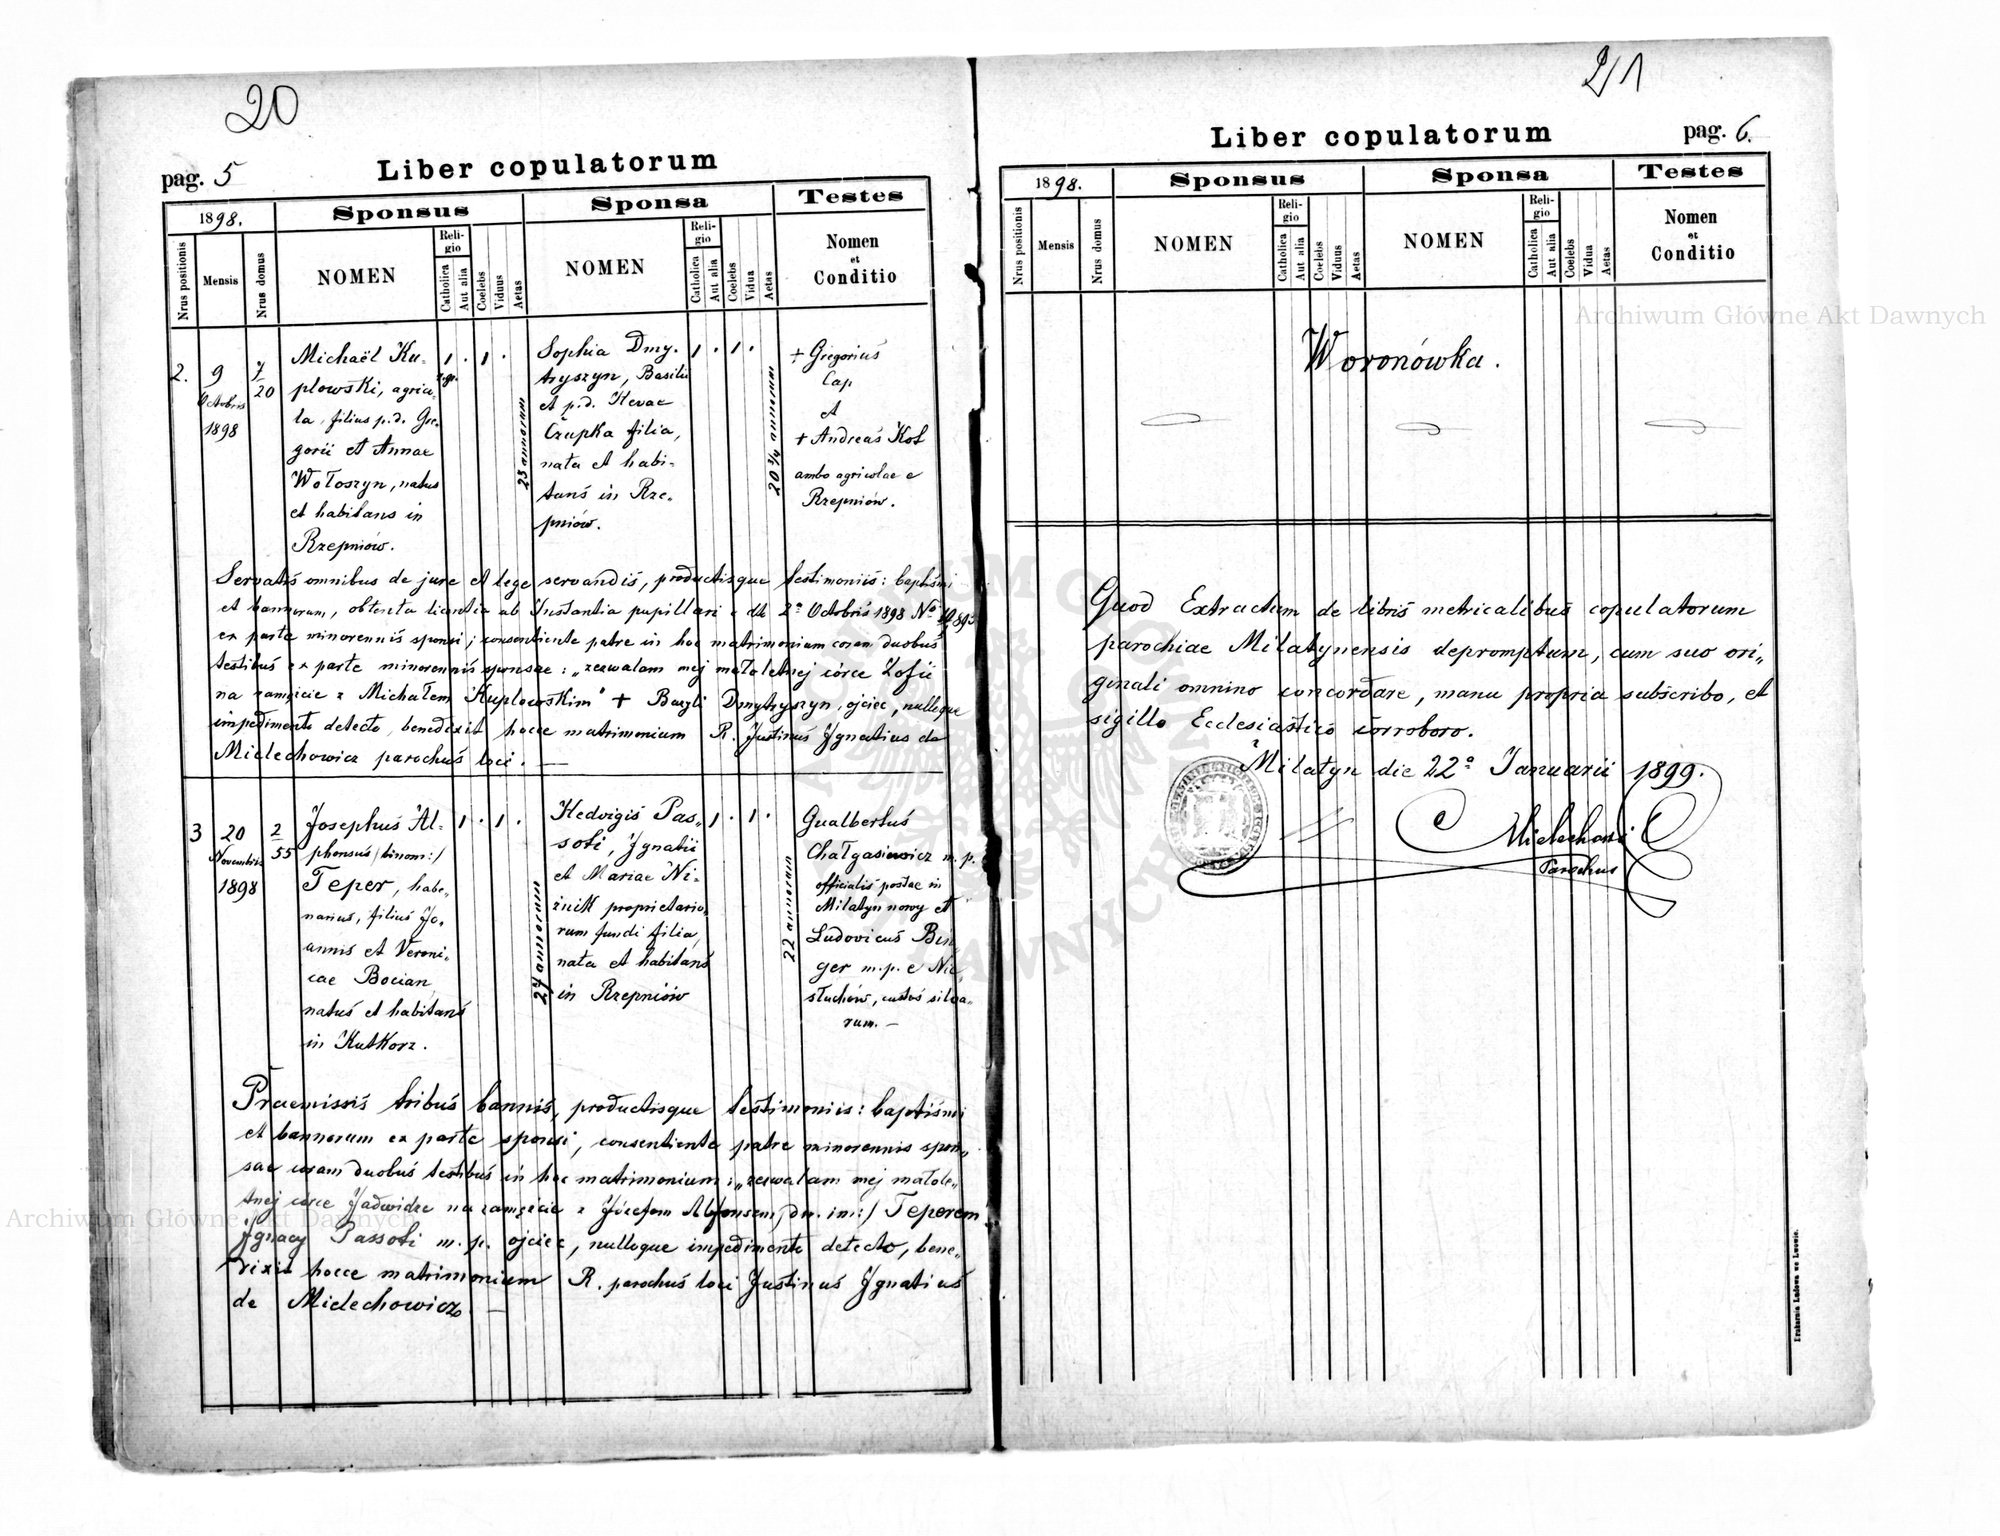 20
Liber copulatorum
pag. 5
1898.
Sponsus
Sponsa
Testes
Nrus positionis
Mensis
Nrus domus
NOMEN
Religio
Catholica
Aut alia
Coelebs
Viduus
Aetas
NOMEN
Religio
Catholica
Aut alia
Coelebs
Vidua
Aetas
Nomen
et
Conditio
2.
9
Octobris
1898
7
20
Michaël Ku-
plowski, agrico-
la, filius p.d. Gre-
gorii et Annae
Wołoszyn, natus
et habitans in
Rzepniów.
1
r.gr.
.
1
.
23 annorum
Sophia Dmy-
tryszyn, Basilii
et p.d. Hevae
Czupka filia,
nata et habi-
tans in Rze-
pniów.
1 . 1 .
20 3/4 annorum
+ Gregorius
Cap
et
+ Andreas Kot
ambo agricolae e
Rzepniów.
Servatis omnibus de jure et lege servandis, productisque testimoniis: baptismi
et bannorum, obtenta licentia ab Instantia pupillari e dt 2º Octobris 1898 Nº
ex parte minorennis sponsi; consentiente patre in hoc matrimonium coram duobus
testibus ex parte minorennis sponsae: „zezwalam mej małoletnej córce Zofii
na zamęźcie z Michałem Kuplowskim" + Bazyli Dmytryszyn, ojciec, nulloque
impedimento detecto, benedixit hocce matrimonium R. Justinus Ignatius de
Mielechowicz parochus loci. —
3
20
Novembris
1898
2
55
Josephus Al-
phonsus (binom:)
Teper, habe-
narius, filius Jo-
annis et Veroni-
cae Bocian,
natus et habitans
in Kutkorz.
1 . 1 .
24 annorum
Hedvigis Pas-
soti, Ignatii
et Mariae Ni-
źnik proprietario-
rum fundi filia,
nata et habitans
in Rzepniów
1 . 1 .
22 annorum
Gualbertus
Chałgasiewicz m.p.
officialis postae in
Milatyn nowy et
Ludovicus Bin-
ger m.p. e Nie-
słuchów, custos silva-
rum. —
Praemissis tribus bannis, productisque testimoniis: baptismi
et bannorum ex parte sponsi, consentiente patre minorennis spon-
sae coram duobus testibus in hoc matrimonium: „zezwalam mej małole-
tnej córce Jadwidze na zamęźcie z Józefem Alfonsem (dw. im:) Teperem
Ignacy Passoti m.p. ojciec, nulloque impedimento detecto, bene-
dixit hocce matrimonium R. parochus loci Justinus Ignatius
de Mielechowicz —
21
Liber copulatorum
pag. 6.
1898.
Sponsus
Sponsa
Testes
Nrus positionis
Mensis
Nrus domus
NOMEN
Religio
Catholica
Aut alia
Coelebs
Viduus
Aetas
NOMEN
Religio
Catholica
Aut alia
Coelebs
Vidua
Aetas
Nomen
et
Conditio
Woronówka.
Quod Extractum de libris metricalibus copulatorum
parochiae Milatynensis depromptum, cum suo ori-
ginali omnino concordare, manu propria subscribo, et
sigillo Ecclesiastico corroboro.
Milatyn die 22º Januarii 1899.
Parochus
Drukarnia Ludowa we Lwowie.
Archiwum Główne Akt Dawnych
Archiwum Główne Akt Dawnych